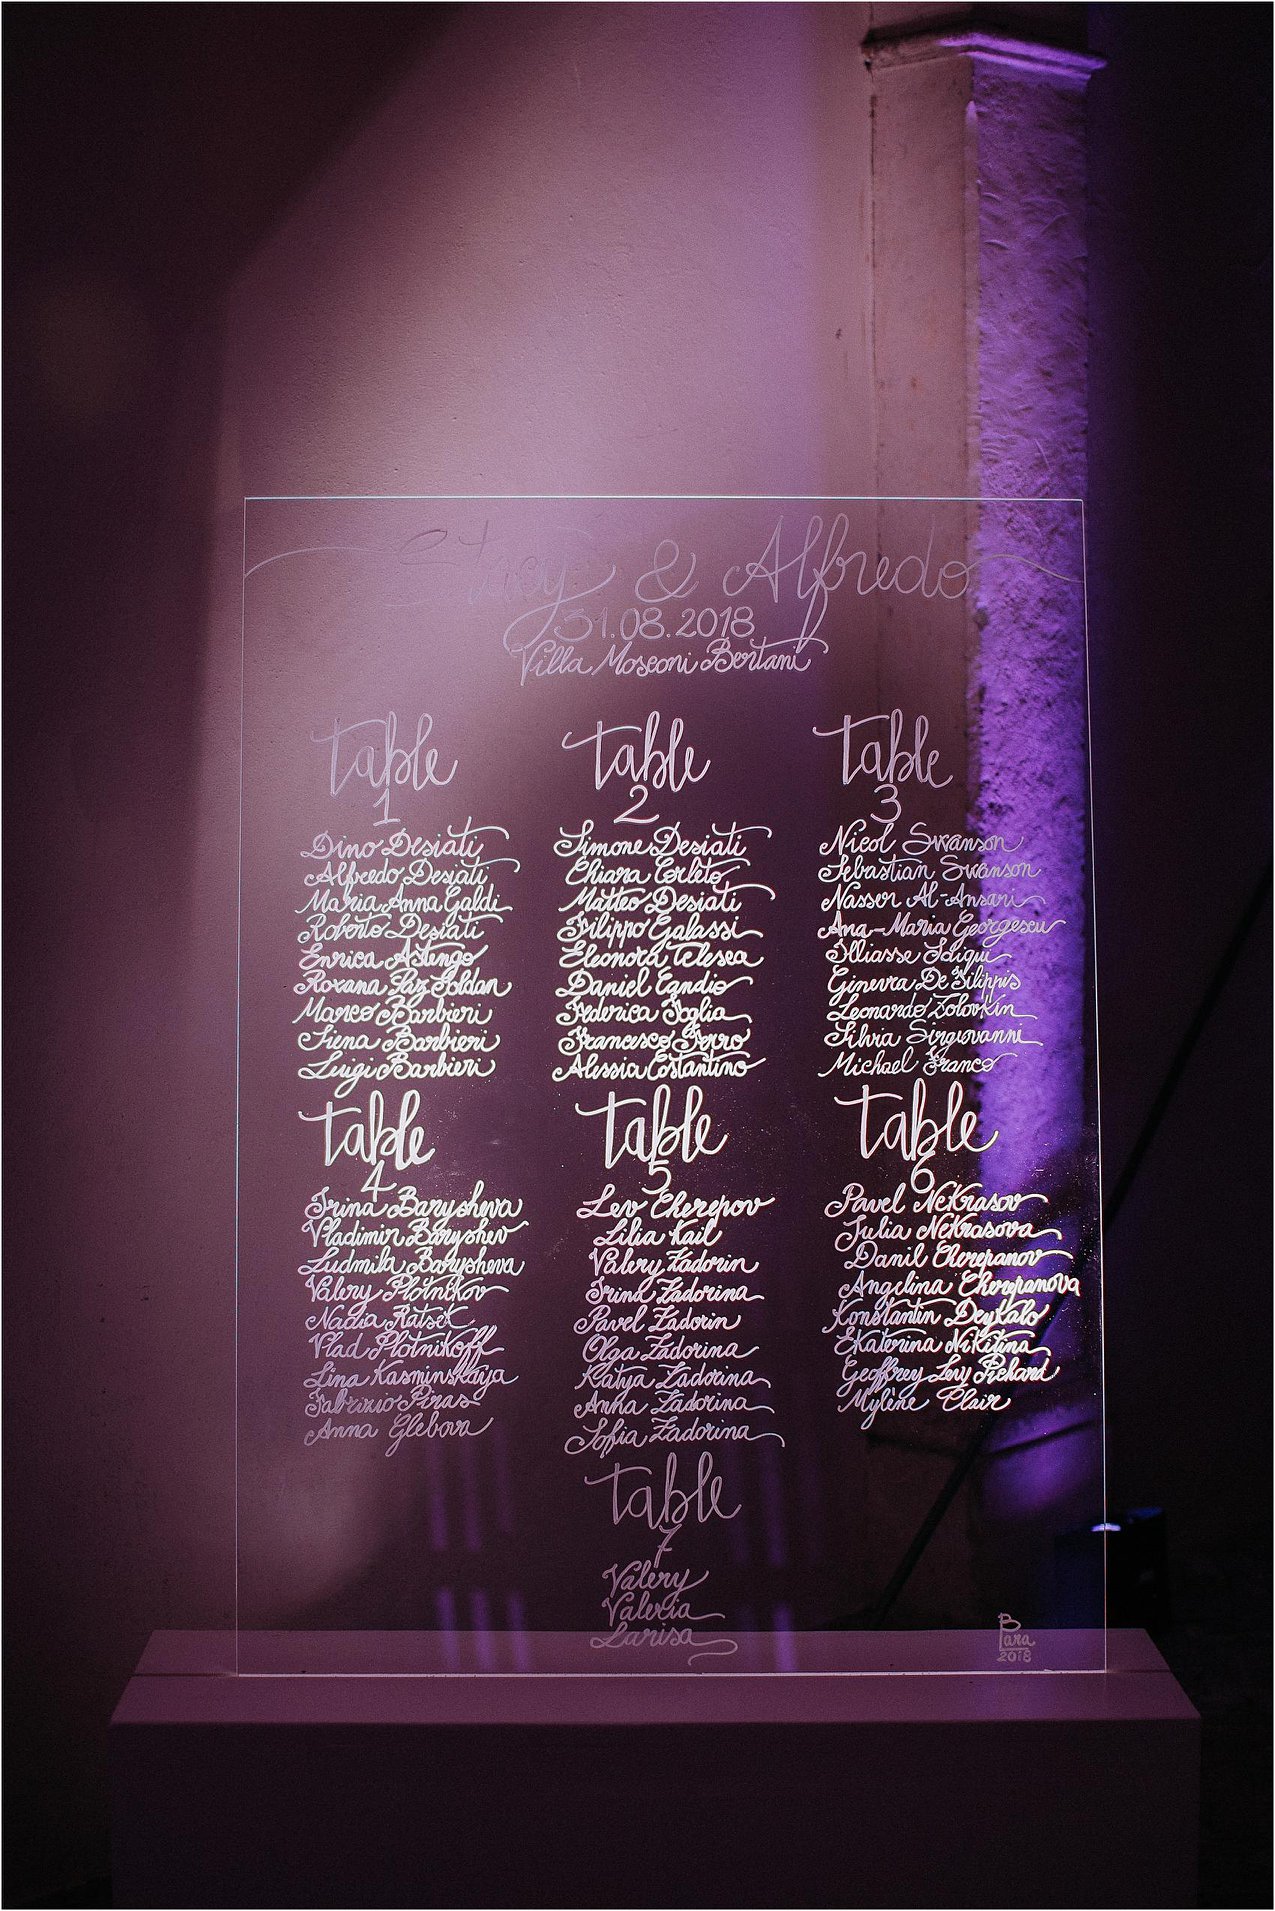 Stacy & Alfredo
31.08.2018
Villa Mosconi Bertani
table
1
Dino Desiati
Alfredo Desiati
Maria Anna Galdi
Roberto Desiati
Enrica Astengo
Roxana Paz Soldan
Marco Barbieri
Siena Barbieri
Luigi Barbieri
table
2
Simone Desiati
Chiara Corleto
Matteo Desiati
Filippo Galassi
Eleonora Telesca
Daniel Egndio
Federica Foglia
Francesco Ferro
Alessia Costantino
table
3
Nicol Swanson
Sebastian Swanson
Nasser Al-Ansari
Ana-Maria Georgescu
Illiasse Sdiqui
Ginevra De Filippis
Leonardo Zolovkin
Silvia Sirgiovanni
Michael Franco
table
4
Irina Barysheva
Vladimir Baryshev
Ludmila Barysheva
Valery Plotnikov
Nadia Ratsek
Vlad Plotnikoff
Lina Kasminskaya
Fabrizio Piras
Anna Glebova
table
5
Lev Cherepov
Lilia Kail
Valery Zadorin
Irina Zadorina
Pavel Zadorin
Olga Zadorina
Katya Zadorina
Anna Zadorina
Sofia Zadorina
table
6
Pavel Nekrasov
Julia Nekrasova
Danil Cherepanov
Angelina Cherepanova
Konstantin Deykalo
Ekaterina Nikitina
Geoffrey Levy Pichard
Mylène Clair
table
7
Valery
Valeria
Larisa
Para
2018